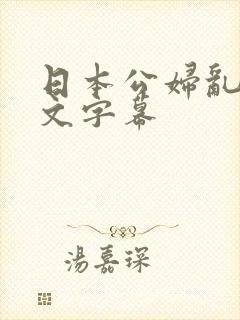 日本公婦亂
文字幕
湯嘉琛